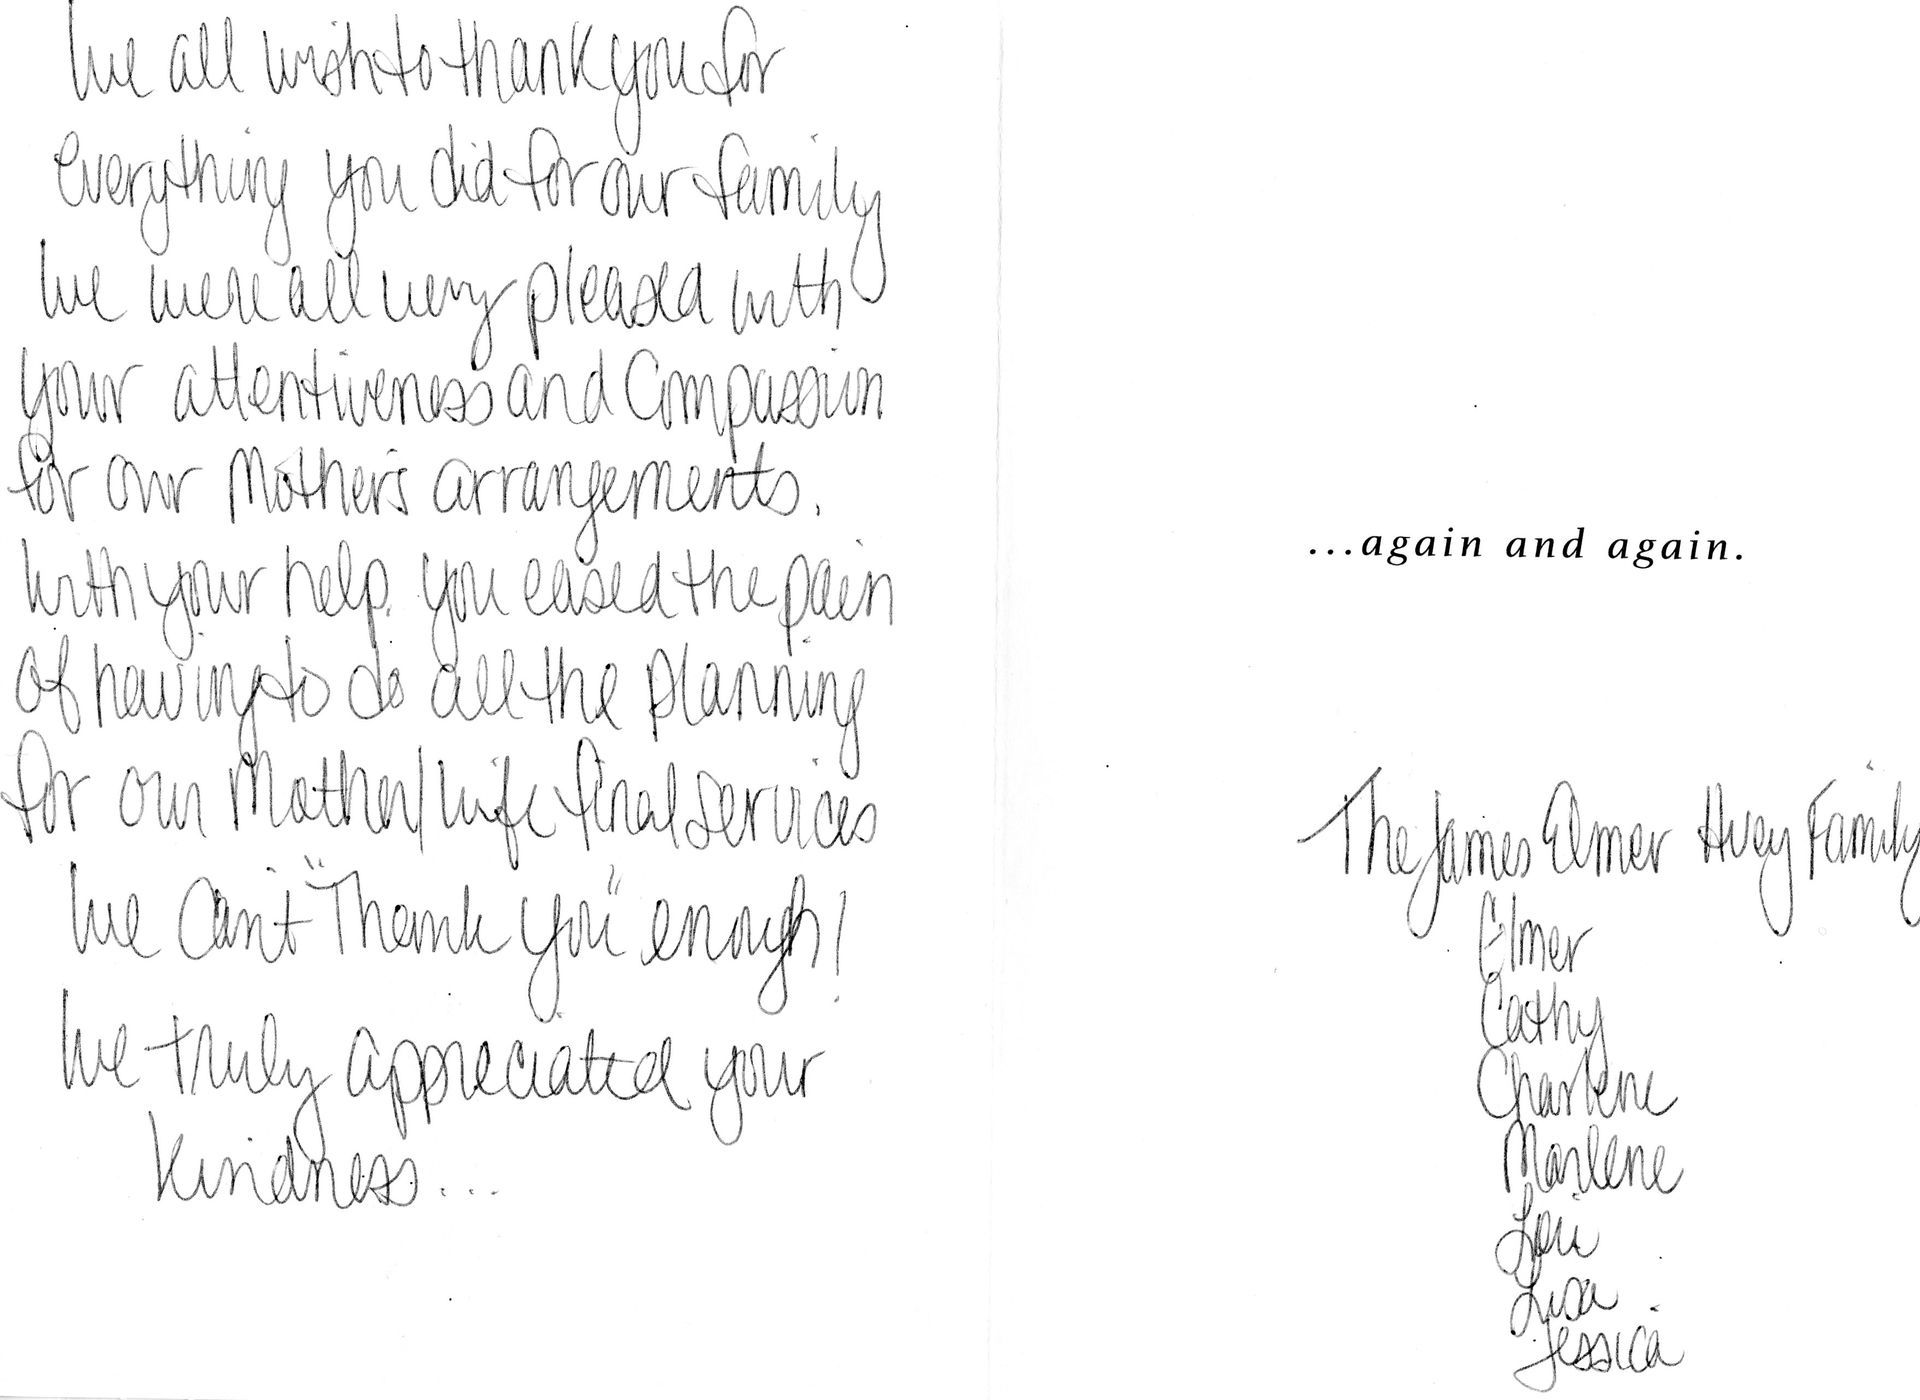 We all wish to thank you for
everything you did for our family
We were all very pleased with
your attentiveness and Compassion
for our Mother's arrangements.
With your help, you eased the pain
of having to do all the planning
for our Mother/Wife final services
We Can't "Thank you" enough!
We truly appreciated your
kindness...
...again and again.
The James Elmer Huey Family
Elmer
Cathy
Charlene
Marlene
Lori
Lisa
Jessica